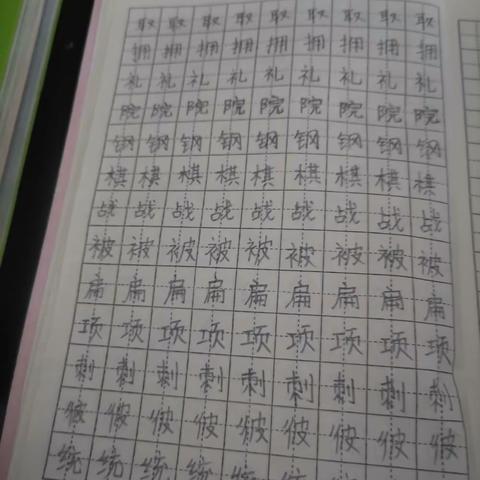 取取取取取取取取取
拥拥拥拥拥拥拥拥拥
礼礼礼礼礼礼礼礼礼
院院院院院院院院院
钢钢钢钢钢钢钢钢钢
棋棋棋棋棋棋棋棋棋
战战战战战战战战战
被被被被被被被被被
扁扁扁扁扁扁扁扁扁
项项项项项项项项项
刺刺刺刺刺刺刺刺刺
统统统统统